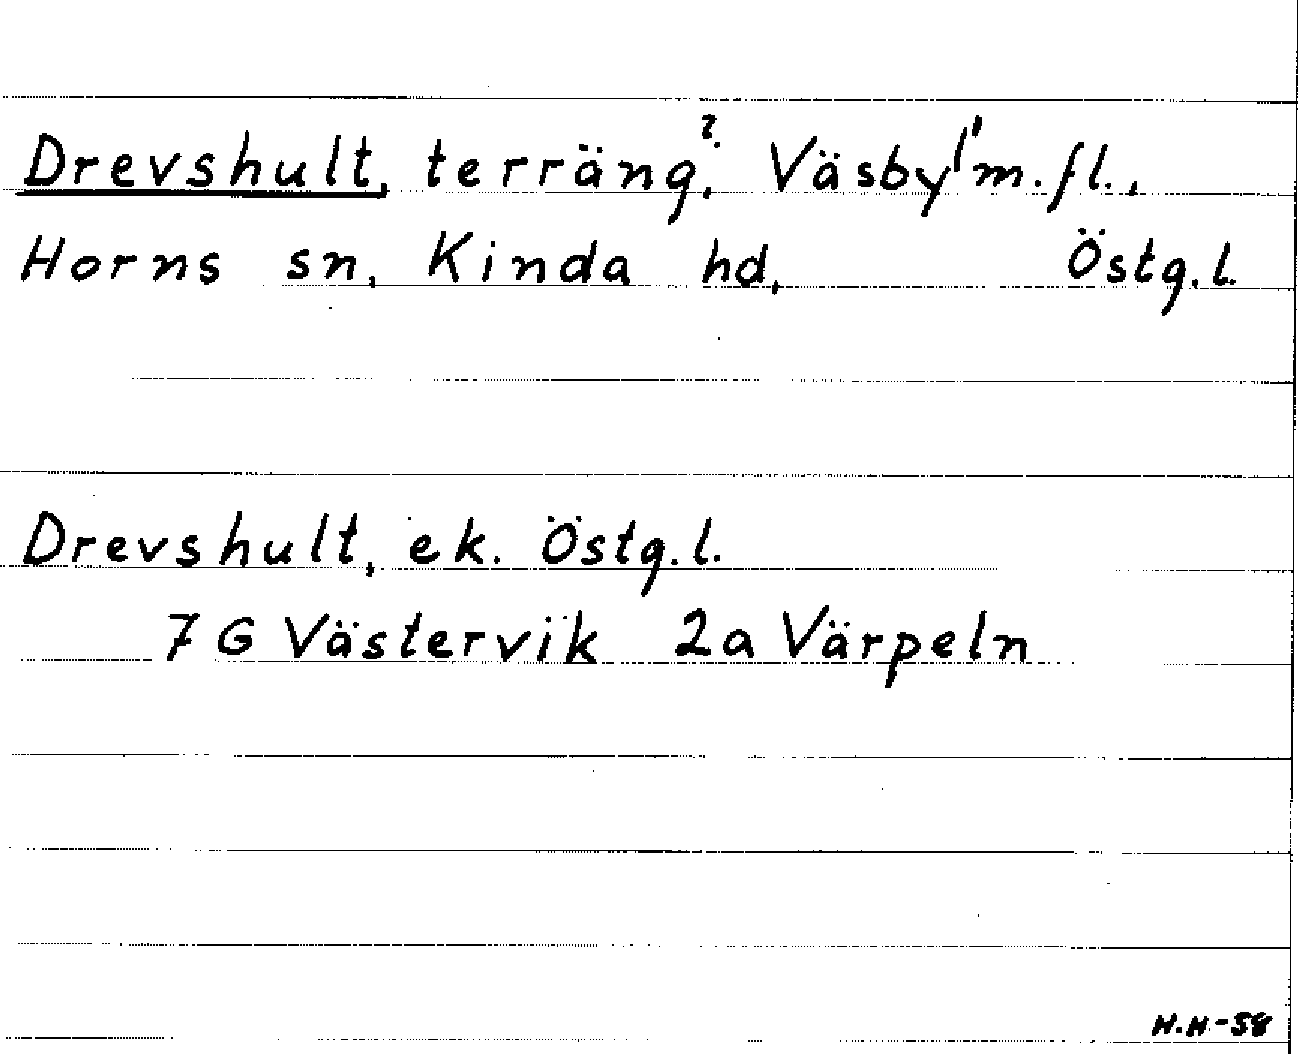 Drevshult, terräng?, Väsby l' m. fl.,
Horns sn, Kinda hd, Östg. l.
Drevshult, ek. Östg. l.
7 G Västervik 2a Värpeln
H.H-58